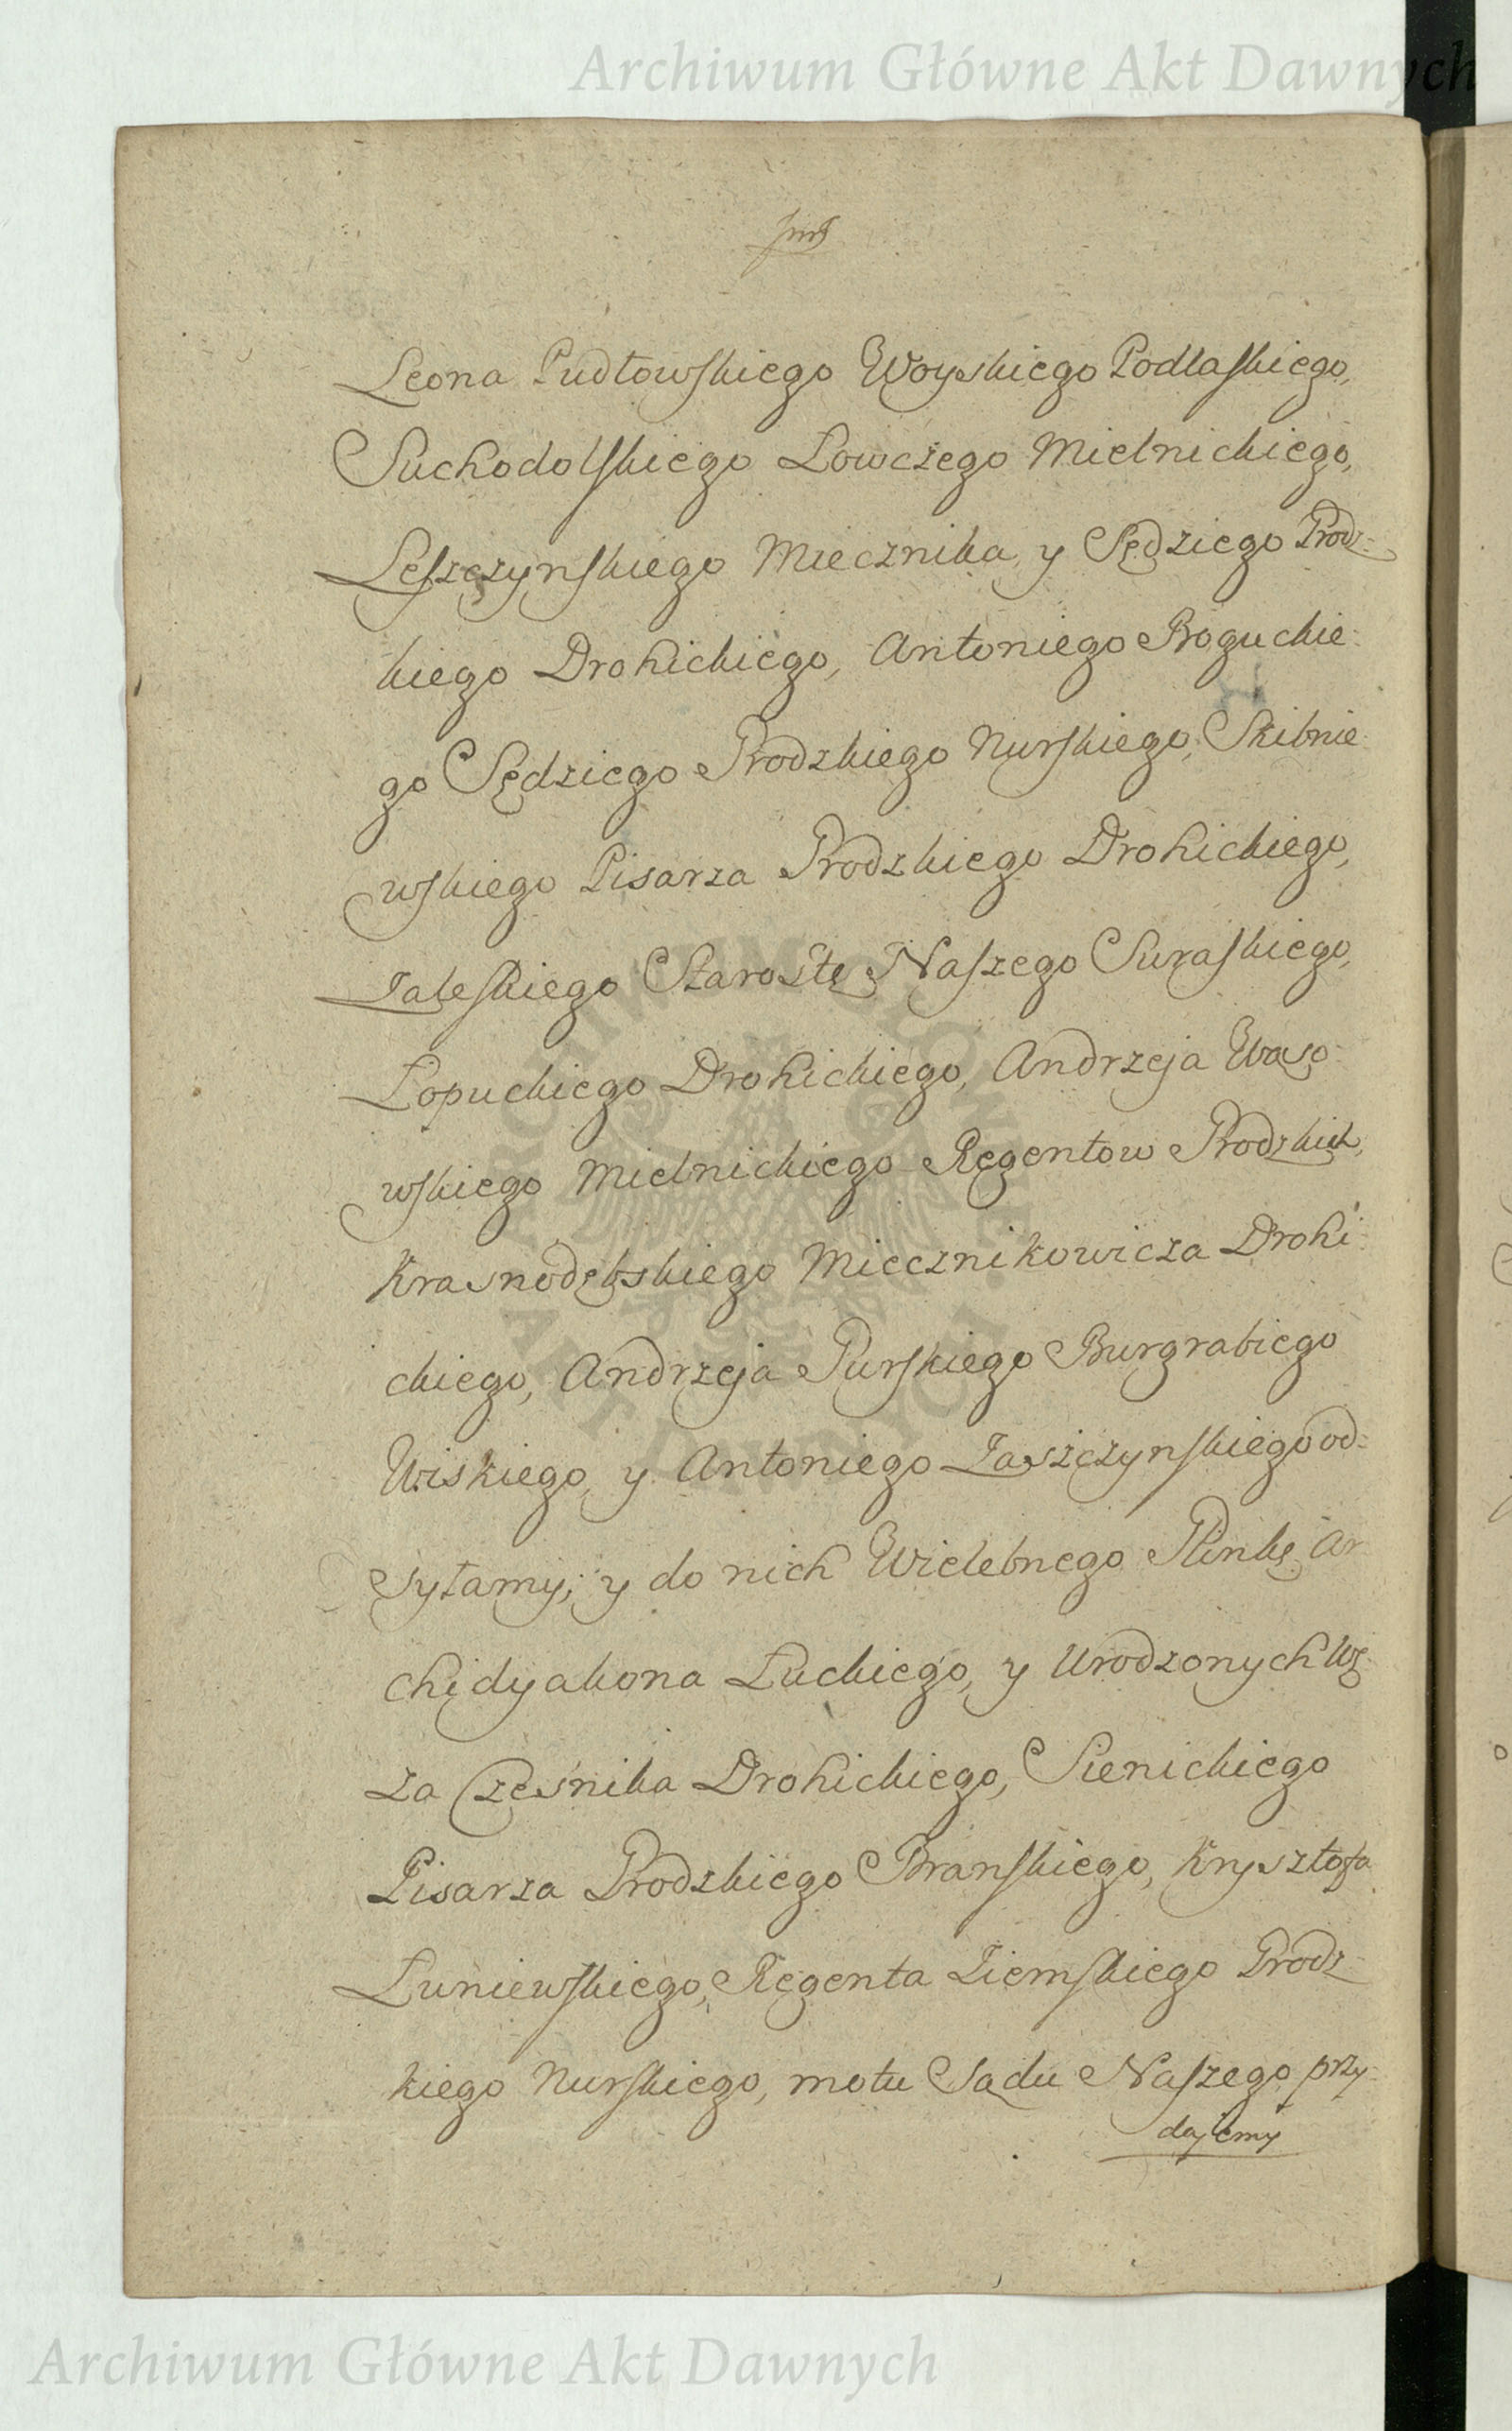 Archiwum Główne Akt Dawnych
Leona Pudłowskiego Woyskiego Podlaskiego,
Suchodolskiego Łowczego Mielnickiego,
Leszczynskiego Miecznika, y Sędziego Grodz-
kiego Drohickiego, Antoniego Boguckie-
go Sędziego Grodzkiego Nurskiego, Skibnie-
wskiego Pisarza Grodzkiego Drohickiego,
Zaleskiego Starostę Naszego Suraskiego,
Łopuckiego Drohickiego, Andrzeja Waso-
wskiego Mielnickiego Regentow Grodzkich,
Krasnodębskiego Miecznikowicza Drohi-
ckiego, Andrzeja Gurskiego Burgrabiego
Wiskiego, y Antoniego Zaszczynskiego od-
syłamy; y do nich Wielebnego Glinkę Ar-
chidyakona Łuckiego, y Urodzonych Wę-
za Cześnika Drohickiego, Sienickiego
Pisarza Grodzkiego Branskiego, Krysztofa
Łuniewskiego, Regenta Ziemskiego Grodz-
kiego Nurskiego, motu Sądu Naszego przy-
dajemy
Archiwum Główne Akt Dawnych